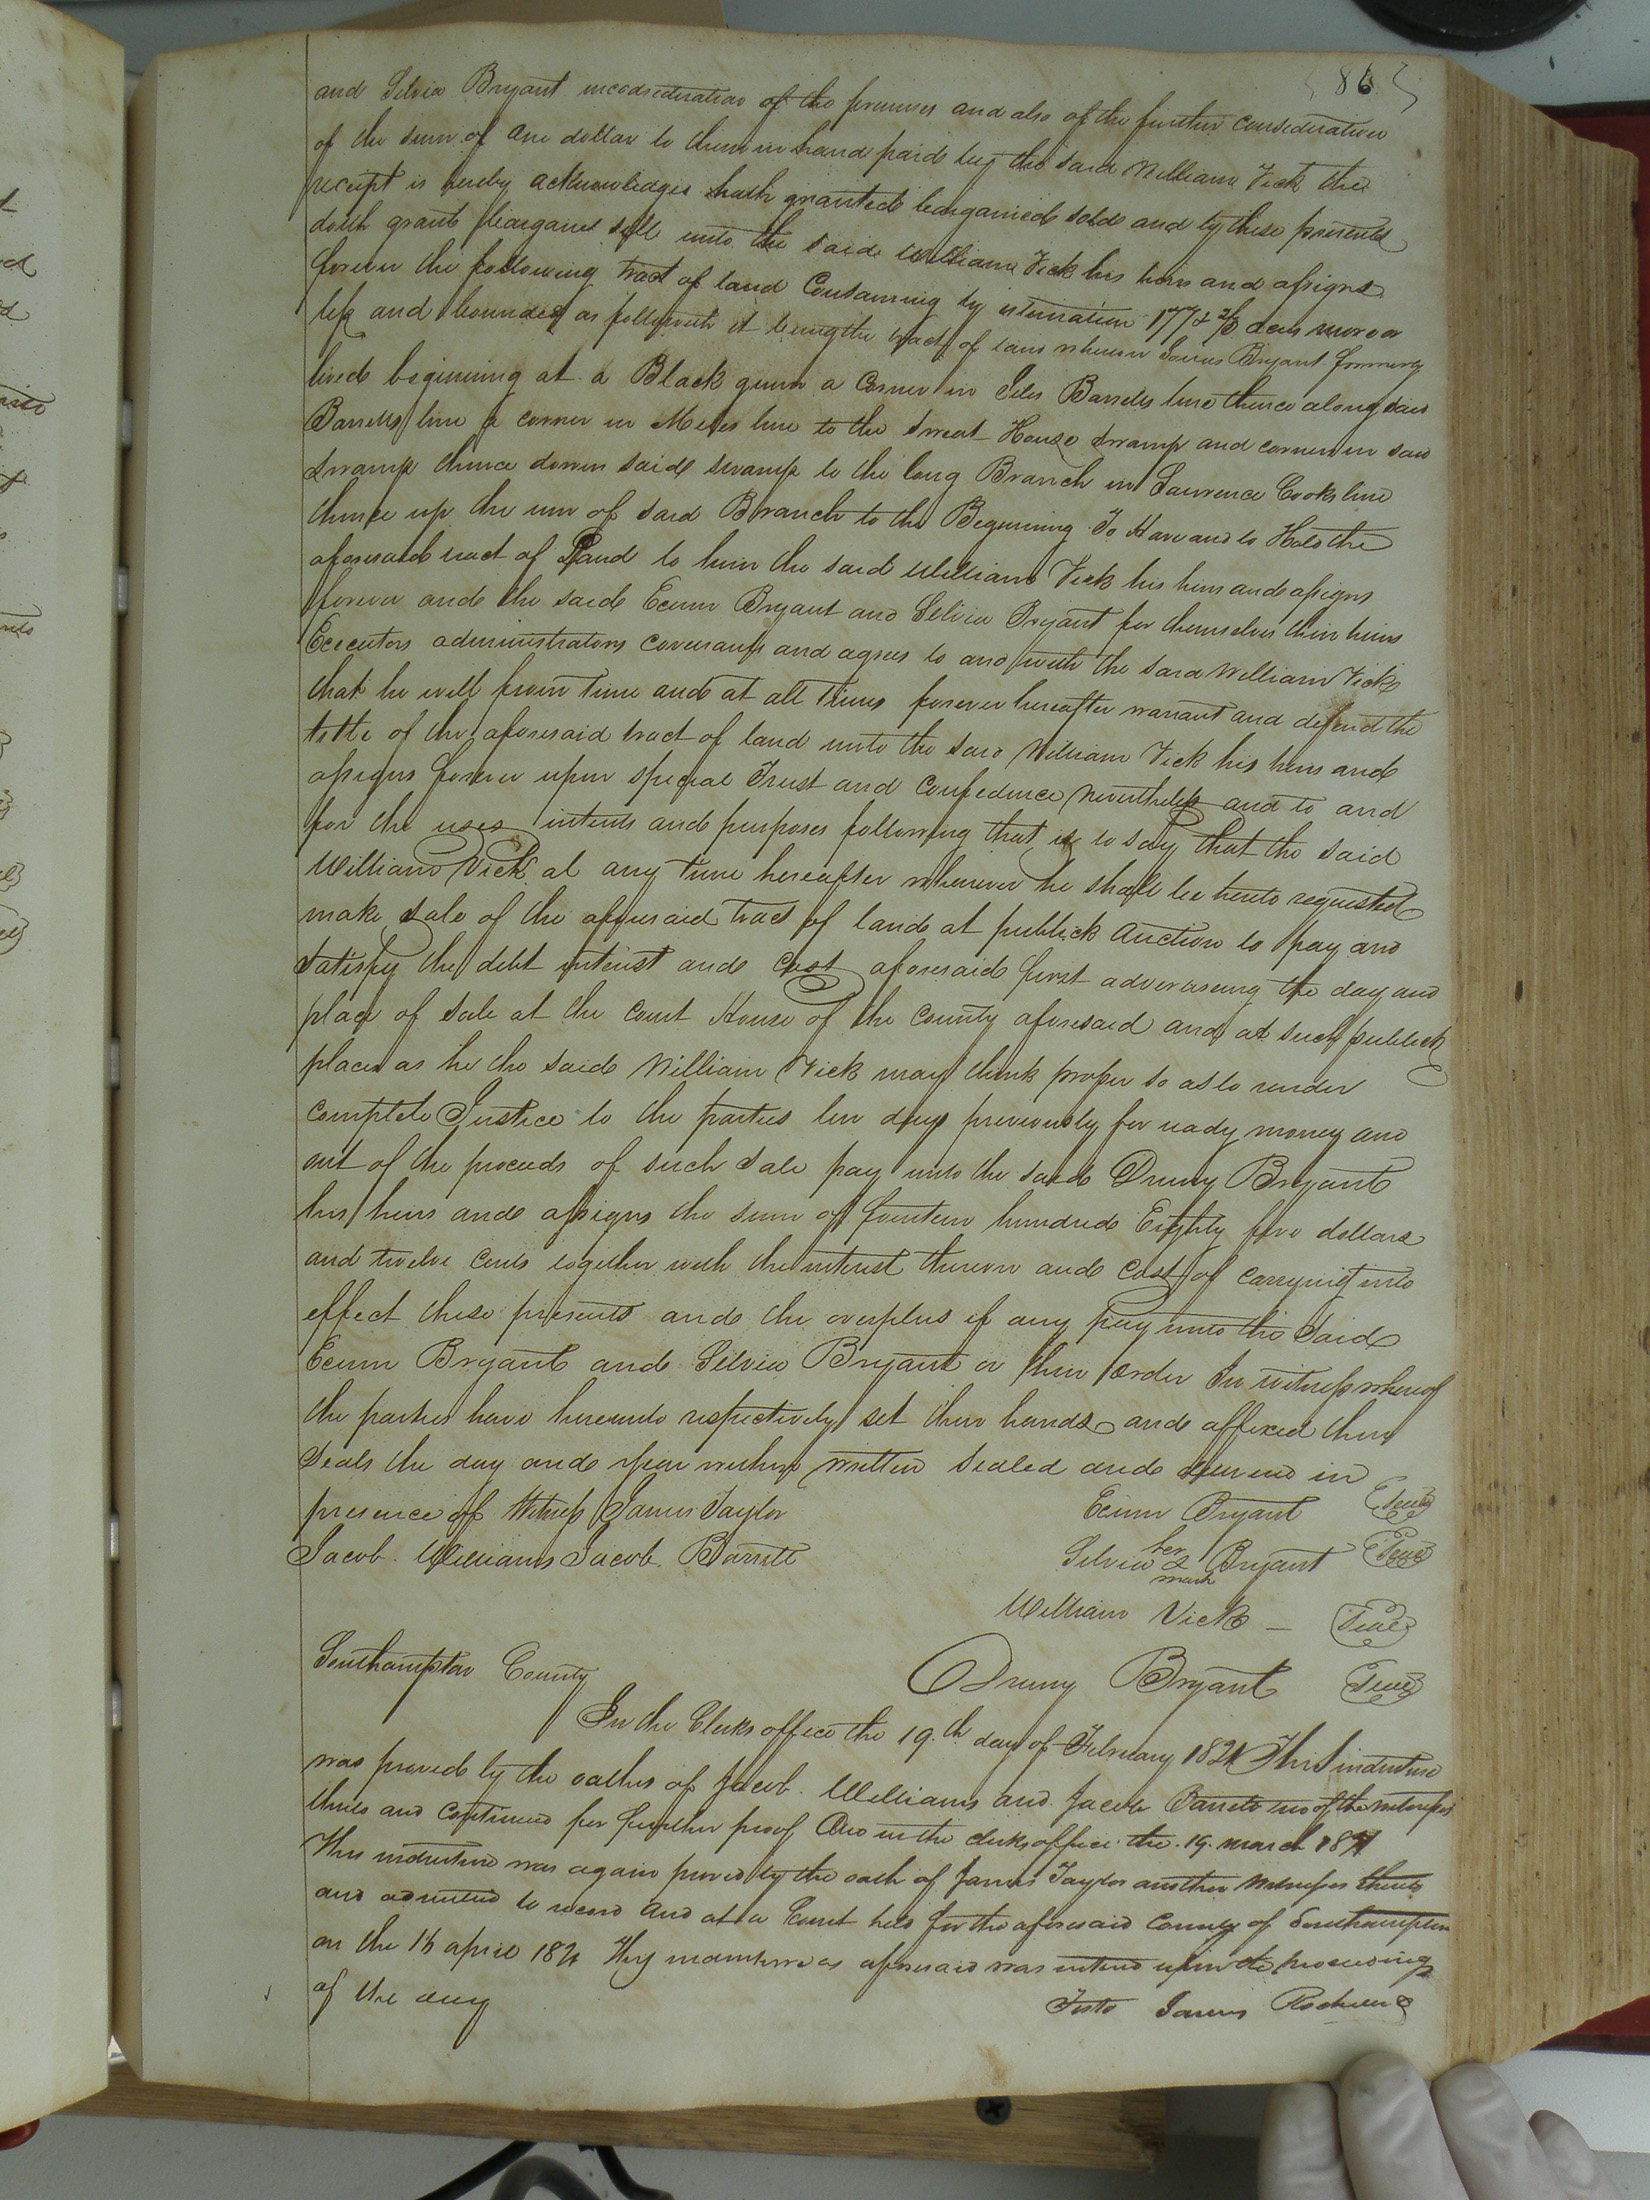 86
and Silvia Bryant in consideration of the premises and also of the further consideration
of the sum of one dollar to them in hand paid by the said William Vick the
receipt is hereby acknowledges hath granted barganied sold and by these presents
doth grant bargain & sell unto the said William Vick his heirs and assigns
forever the following tract of land Containing by estimation 177 & 2/3 acres more or
less and bounded as followeth it being the tract of land whereon James Bryant formerly
lived beginning at a Black gum a corner in Giles Barretts line thence along said
Barretts line a corner in line to the Sweat House Swamp and corner in said
Swamp thence down said swamp to the long Branch in Lawrence Cooks line
thence up the run of said Branch to the Beginning To Have and to Hold the
aforesaid tract of Land to him the said William Vick his heirs and assigns
forever and the said Exum Bryant and Silvia Bryant for themselves their heirs
Executors administrators covenants and agrees to and with the said William Vick
that he will from time and at all times forever hereafter warrant and defend the
title of the aforesaid tract of land unto the said William Vick his heirs and
assigns forever upon special Trust and Confidence nevertheless and to and
for the uses intents and purposes following that is to say that the said
William Vick at any time hereafter whenever he shall be hereto requested
make sale of the aforesaid tract of land at publick auction to pay and
Satisfy the debt interest and cost aforesaid first adverticing the day and
place of sale at the court House of the County aforesaid and at such publick
places as he the said William Vick may think proper so as to render
complete Justice to the parties ten days previously for ready money and
out of the proceeds of such sale pay unto the said Drury Bryant
his heirs and assigns the sum of fourteen hundred Eighty five dollars
and twelve cents together with the interest thereon and cost of carrying into
effect these presents and the overplus if any pay unto the said
Exum Bryant and Silvia Bryant or their order In witness whereof
the parties have hereunto respectively set their hands and affixed their
Seals the day and year within written sealed and delivered in
presence of Witness James Taylor Exum Bryant Seal
Jacob Williams Jacob Barrett Silvia her mark Bryant Seal
William Vick — Seal
Southampton County Drury Bryant Seal
In the Clerks office the 19th day of February 1821 This indenture
was proved by the oathes of Jacob Williams and Jacob Barrett two of the witnesses
thereto and continued for further proof And in the clerks office the 19 march 1821
This indenture was again proved by the oath of James Taylor another witnesses thereto
and admitted to record And at a Court held for the aforesaid County of Southampton
on the 16 april 1821 This indenture as aforesaid was entered upon the proceedings
of the day Teste James Rochelle